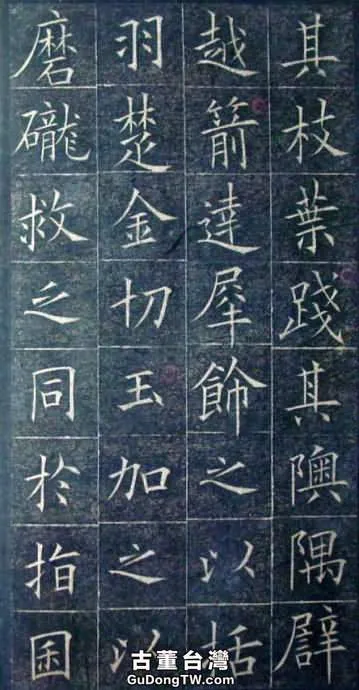 其枝葉踐其隩隅譬
越箭達犀飾之以栝
羽楚金切玉加之以
磨礲救乏同於指囷
古董台灣
GuDongTW.com